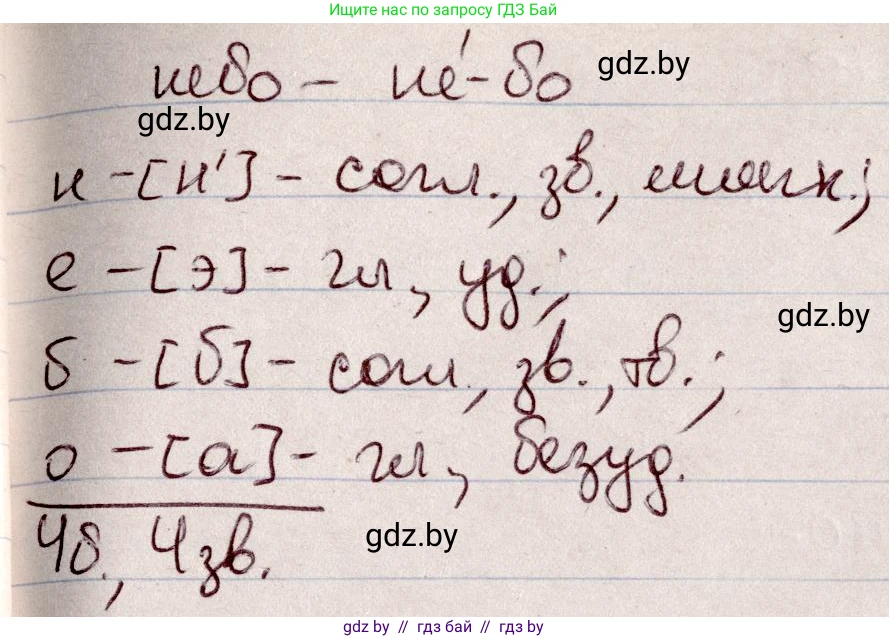 Ищите нас по запросу ГДЗ Бай
небо – не́-бо gdz.by
gdz.by
н – [н'] – согл., зв., мягк.;
е – [э] – гл, уд.;
gdz.by
б – [б] – согл, зв., тв.;
о – [а] – гл, безуд.
4б., 4зв. gdz.by
gdz by // гдз бай // гдз by